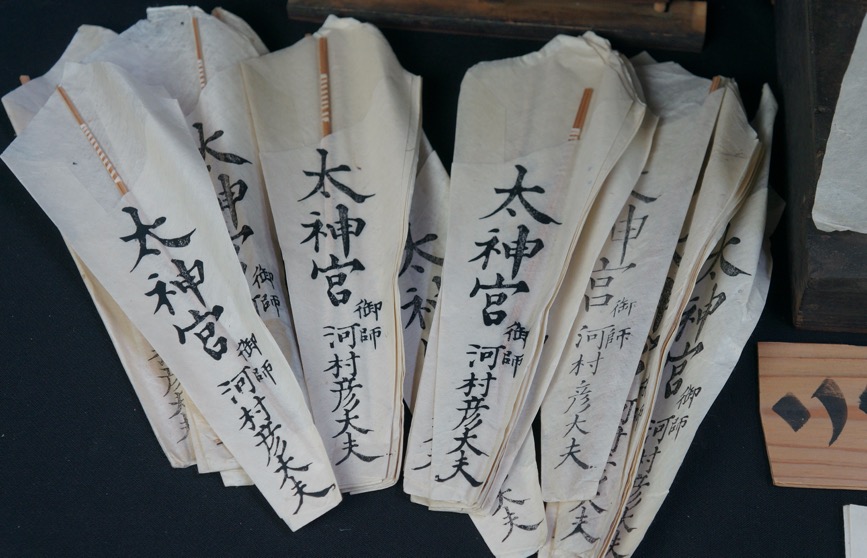 太神宮
御師
河村彦大夫
太神宮
御師
太神宮
御師
河村彦大夫
太神宮
御師
河村彦大夫
神宮
御師
河村彦大夫
太神宮
御師
河村